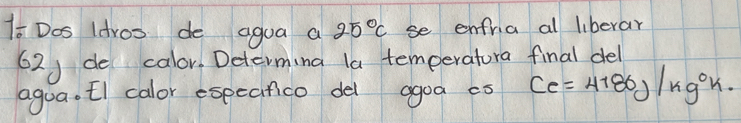 1.- Dos litros de agua a 25°C se enfria al liberar
62J de calor. Determina la temperatura final del
agua. El calor especifico del agua es Ce= 4186J/kg°K.